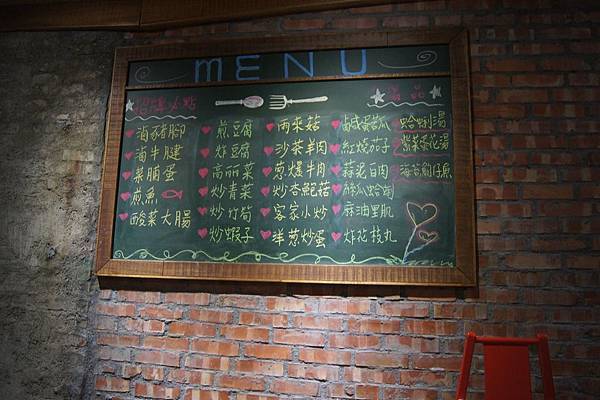 MENU
招牌小點
湯品
滷豬腳
滷牛腱
菜脯蛋
煎魚
酸菜大腸
煎豆腐
炸豆腐
高麗菜
炒青菜
炒竹筍
炒蝦子
雨來菇
沙茶羊肉
蔥爆牛肉
炒杏鮑菇
客家小炒
洋蔥炒蛋
鹹蛋苦瓜
紅燒茄子
蒜泥白肉
絲瓜蛤蜊
麻油里肌
炸花枝丸
蛤蜊湯
紫菜蛋花湯